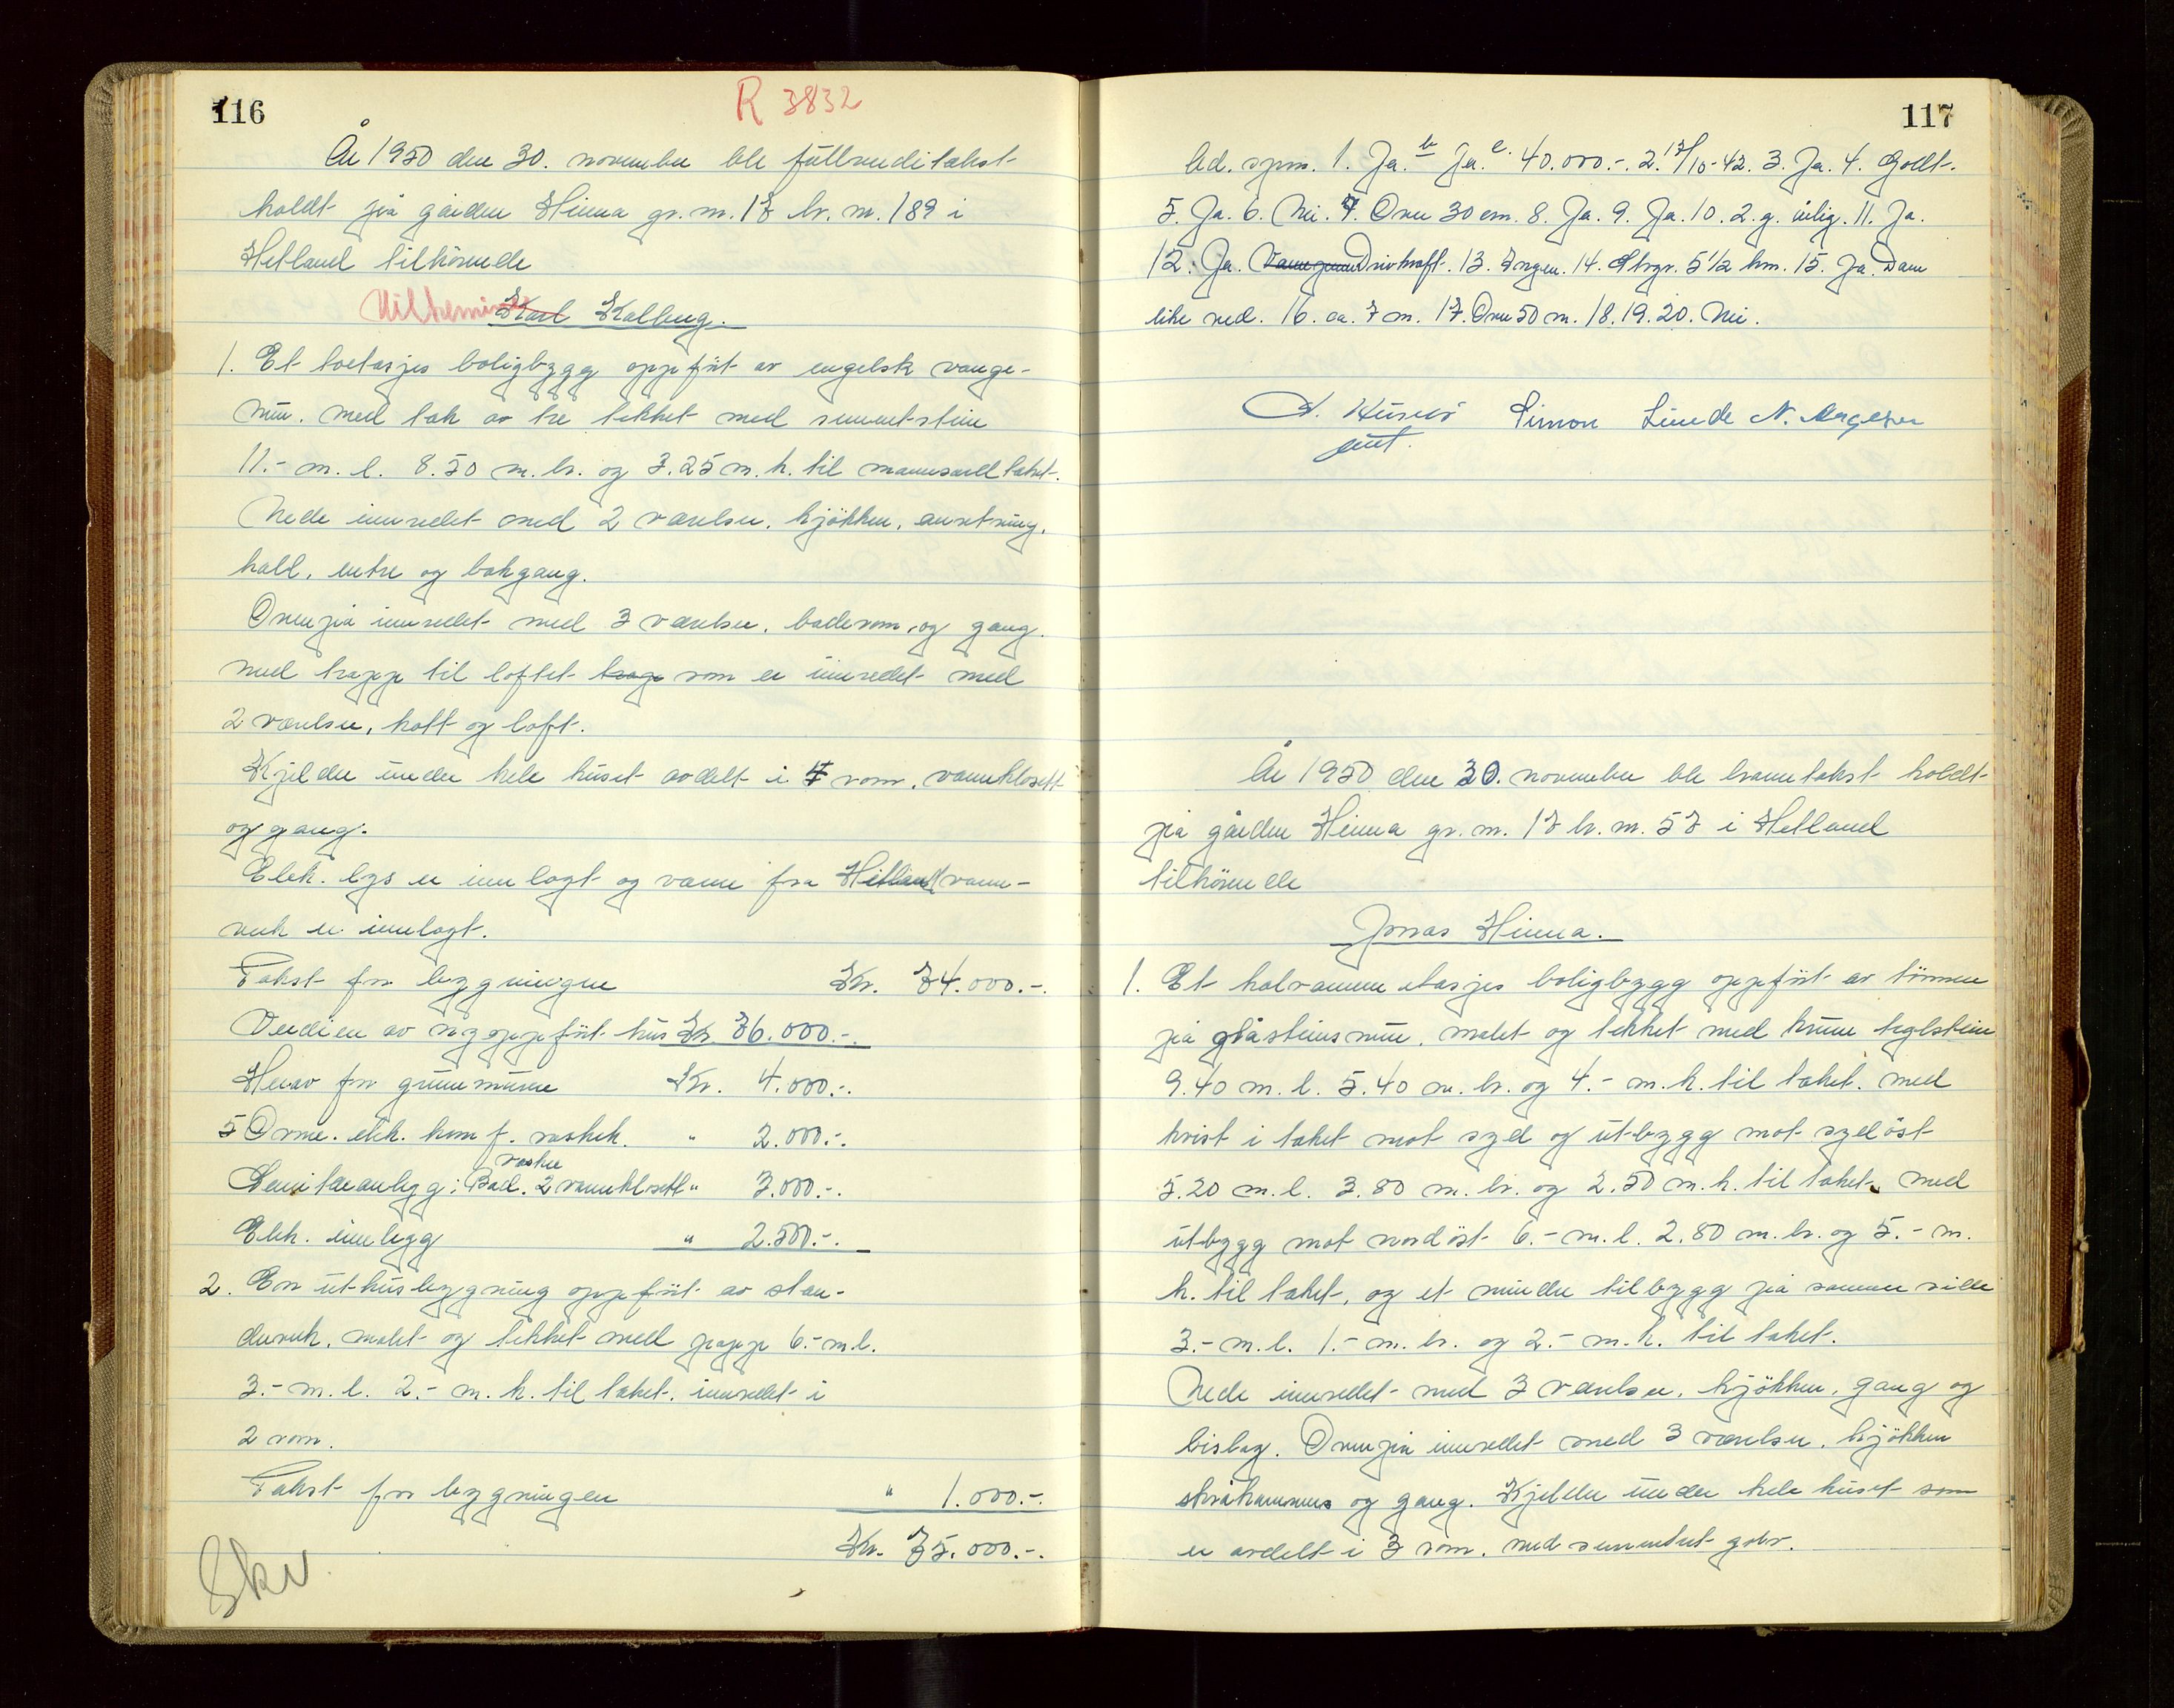 116
R 3832
År 1950 den 30. november ble fullverditakst
holdt på gården Hinna gr. nr. 17 br. nr. 189 i
Hetland tilhörende
Vilhelmine Karl Kolberg.
1. Et toetasjes boligbygg oppfüt av engelsk vange-
mür. med tak av tre tekket med sementstein
11.- m. l. 8.50 m. br. og 3.25 m. h. til mansardtaket.
Nede innredet med 2 værelser, kjökken, anretning,
hall, entre og bakgang.
Ovenpå innredet med 3 værelser, baderom, og gang.
med trapp til loftet trapp som er innredet med
2 værelser, kott og loft.
Kjelder ünder hele hüset avdelt i 4 rom, vannklosett
og gang.
Elek. lys er innlagt og vann fra Hetland vann-
verk er innlagt.
Takst for bygningen Kr. 74.000.-.
Verdien av nyoppfüt hüs Kr. 76.000.-.
Herav for grünnmüren Kr. 4.000.-.
5 Ovne. elek. kom f. vaskek. " 2.000.-.
Sanitæranlegg: Bad. vaske 2 vannklosett " 3.000.-.
Elek. innlegg " 2.500.-.
2. En üthüsbygning oppfüt av stan-
derverk, malet og tekket med papp 6.- m. l.
3.- m. l. 2.- m. h. til taket. innredet i
2 rom.
Takst for bygningen " 1.000.-.
Kr. 75.000.-.
Skv
117
Ad. spm. 1. Ja. b Ja. c. 40.000.-. 2. 17/10-42. 3. Ja. 4. Godt.
5. Ja. 6. Nei. 7. Over 30 cm. 8. Ja. 9. Ja. 10. 2. g. årlig. 11. Ja.
12. Ja. Drivkraft. 13. Ingen. 14. Stvgr. 5 1/2 km. 15. Ja. Dam
like ved. 16. ca. 7 m. 17. Over 50 m. 18. 19. 20. Nei.
Simon Lünde
År 1950 den 30. november ble branntakst holdt
på gården Hinna gr. nr. 17 br. nr. 57 i Hetland
tilhörende
Jonas Hinna.
1. Et halvannen etasjes boligbygg oppfüt av tömmer
på gråsteinsmür, malet og tekket med krüm teglstein
9.40 m. l. 5.40 m. br. og 4.- m. h. til taket. med
kvist i taket mot syd og ütbygg mot sydöst
5.20 m. l. 3.80 m. br. og 2.50 m. h. til taket, med
ütbygg mot nordöst 6.- m. l. 2.80 m. br. og 5.- m.
h. til taket, og et mindre tilbygg på samme side
3.- m. l. 1.- m. br. og 2.- m. h. til taket.
Nede innredet med 3 værelser, kjökken, gang og
bislag. Ovenpå innredet med 3 værelser, kjökken
skråkammers og gang. Kjelder ünder hele hüset som
er avdelt i 3 rom, med sementert golv.